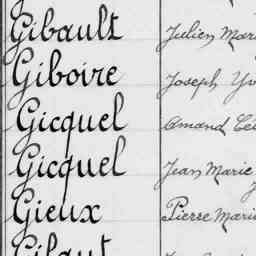 Gibault Julien
Giboire Joseph
Gicquel Amand
Gicquel Jean Marie
Gieux Pierre Marie
Gilaut